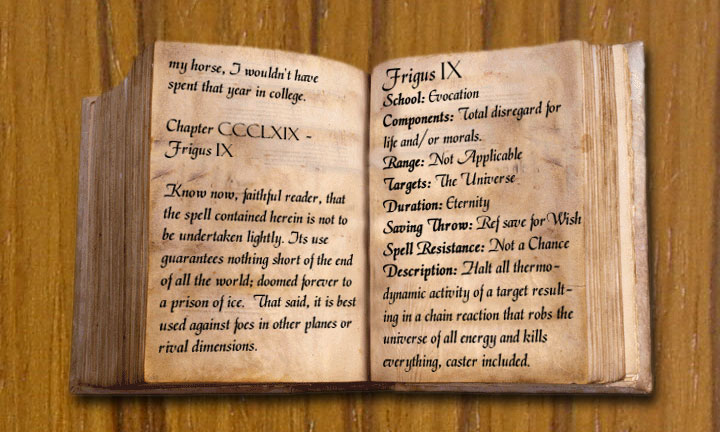 my horse, I wouldn't have
spent that year in college.
Chapter CCCLXIX -
Frigus IX
Know now, faithful reader, that
the spell contained herein is not to
be undertaken lightly. Its use
guarantees nothing short of the end
of all the world; doomed forever to
a prison of ice. That said, it is best
used against foes in other planes or
rival dimensions.
Frigus IX
School: Evocation
Components: Total disregard for
life and/or morals.
Range: Not Applicable
Targets: The Universe
Duration: Eternity
Saving Throw: Ref save for Wish
Spell Resistance: Not a Chance
Description: Halt all thermo-
dynamic activity of a target result-
ing in a chain reaction that robs the
universe of all energy and kills
everything, caster included.